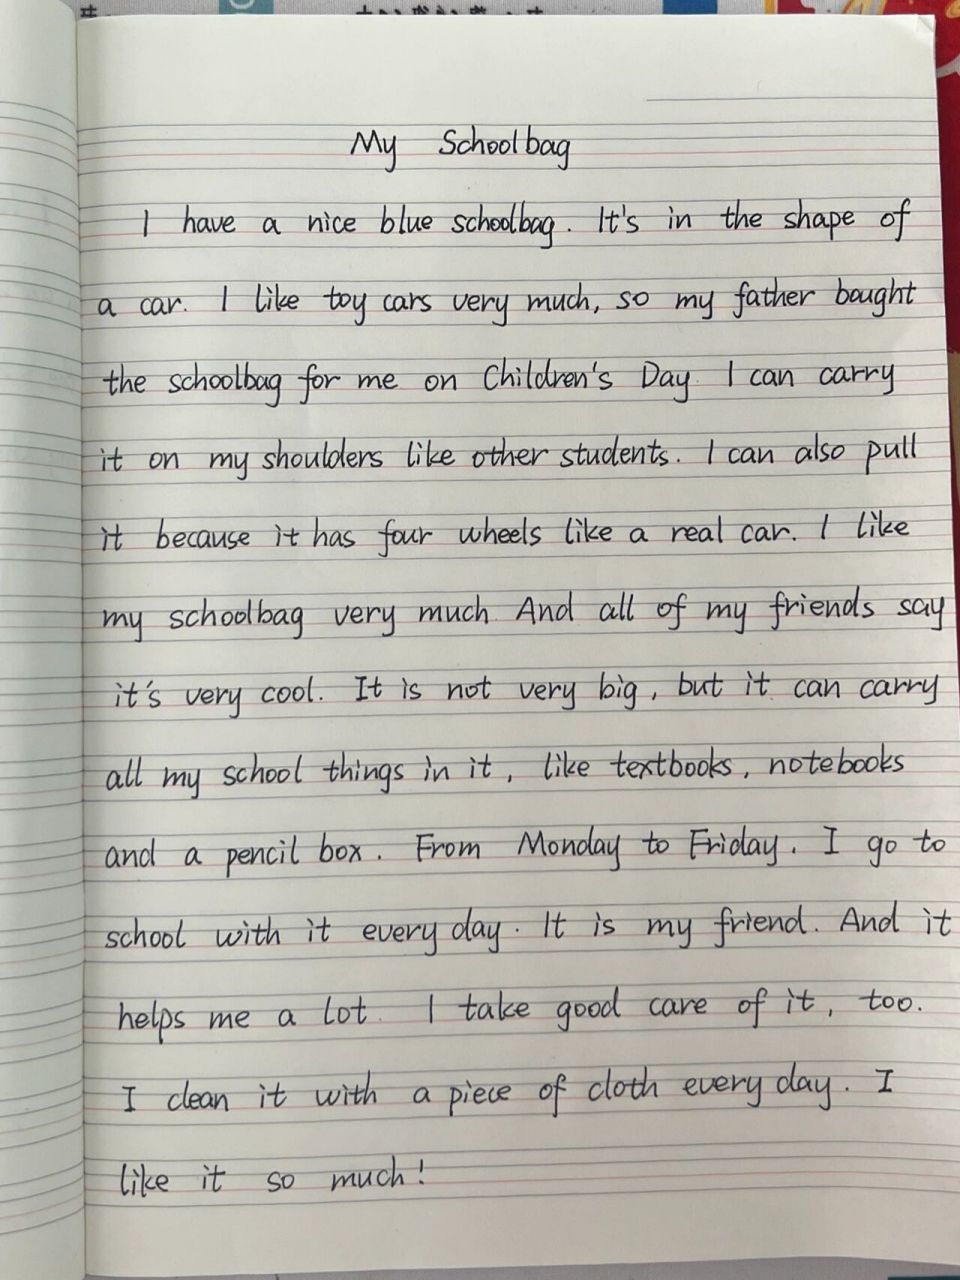 My Schoolbag
I have a nice blue schoolbag. It's in the shape of
a car. I like toy cars very much, so my father bought
the schoolbag for me on Children's Day. I can carry
it on my shoulders like other students. I can also pull
it because it has four wheels like a real car. I like
my schoolbag very much. And all of my friends say
it's very cool. It is not very big, but it can carry
all my school things in it, like textbooks, notebooks
and a pencil box. From Monday to Friday. I go to
school with it every day. It is my friend. And it
helps me a lot. I take good care of it, too.
I clean it with a piece of cloth every day. I
like it so much!